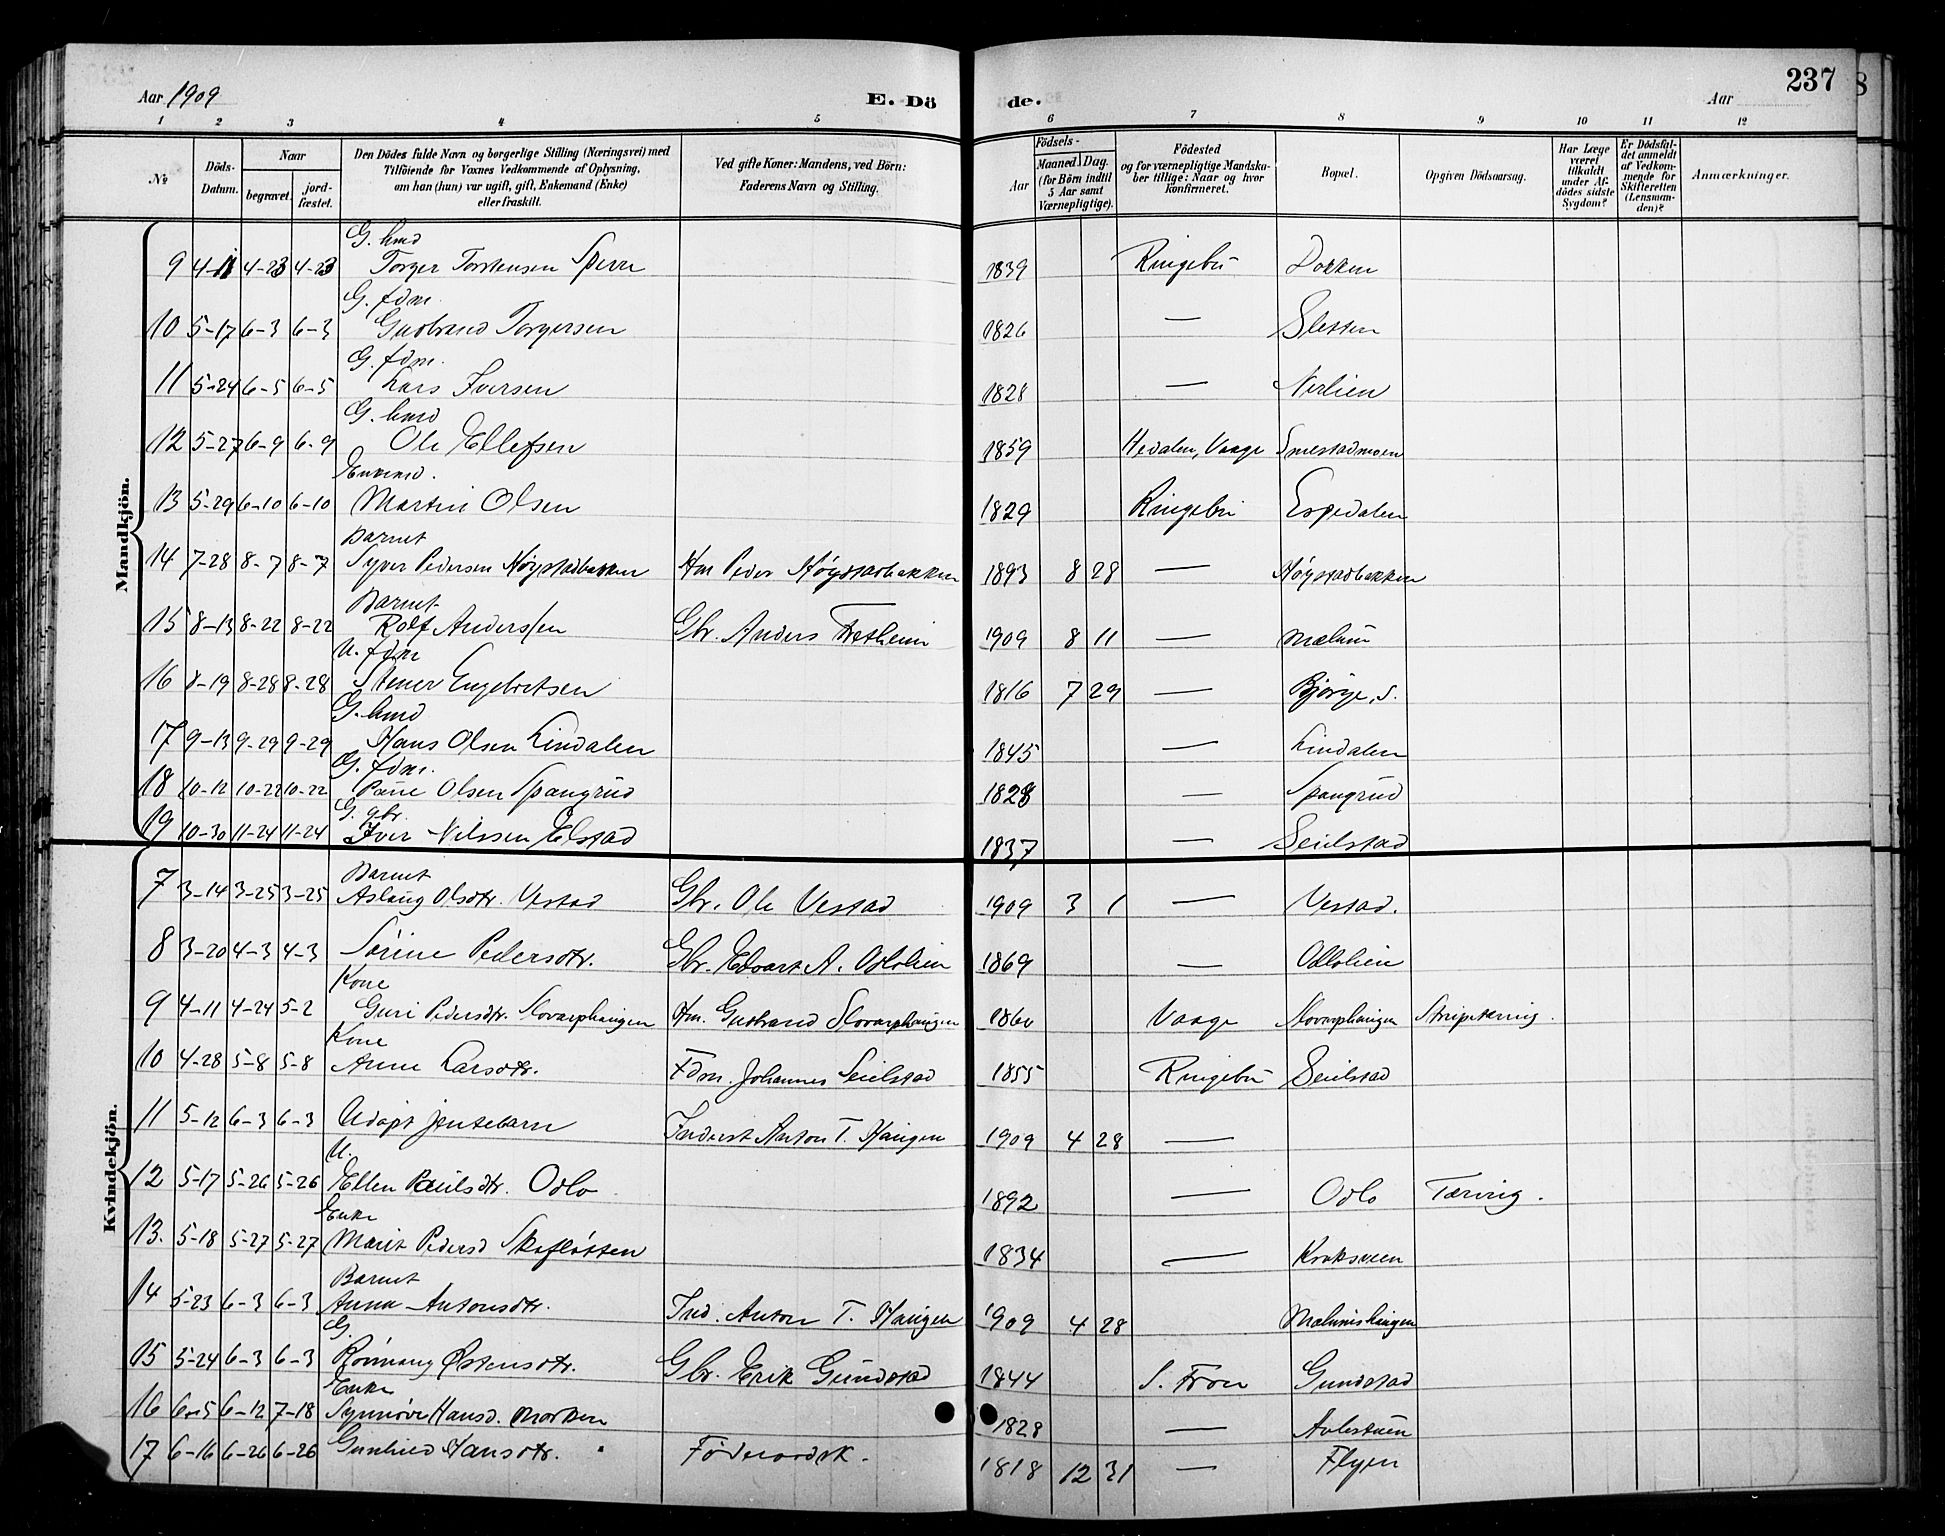 Aar 1909 E. Dö de. Aar 237
1 2 3 4 5 6 7 8 9 10 11 12
№ Döds-Datum. Naar begravet. jordfæstet. Den Dödes fulde Navn og borgerlige Stilling (Næringsvei) med Tilföiende for Voxnes Vedkommende af Oplysning, om han (hun) var ugift, gift, Enkemand (Enke) eller fraskilt. Ved gifte Koner: Mandens, ved Börn: Faderens Navn og Stilling. Födsels- Aar Maaned. Dag. (for Börn indtil 5 Aar samt Værnepligtige). Födested og for værnepligtige Mandskaber tillige: Naar og hvor Konfirmeret. Bopæl. Opgiven Dödsaarsag. Har Læge været tilkaldt under Afdödes sidste Sygdom? Er Dödsfaldet anmeldt af Vedkommende for Skifteretten (Lensmanden)? Anmærkninger.
Mandkjön.
G. hmd
9 4-11 4-23 4-23 Torger Torstensen 1839 Ringebu Dokken
G. fdm.
10 5-17 6-3 6-3 Gudbrand Torgersen 1826 — Sletten
G. fdm.
11 5-24 6-5 6-5 Lars Iversen 1828 — Nerlien
G. hmd
12 5-27 6-9 6-9 Ole Ellefsen 1859 Hedalen, Vaage Smestadmoen
Enkemd.
13 5-29 6-10 6-10 Martin Olsen 1829 Ringebu Espedalen
Barnet
14 7-28 8-7 8-7 Syver Pedersen Høystadbakken Hm Peder Høystadbakken 1893 8 28 — Høystadbakken
Barnet
15 8-13 8-22 8-22 Rolf Anderssen Gbr. Anders Fretheim 1909 8 11 — Mælum
U. fdm
16 8-19 8-28 8-28 Stener Engebretsen 1816 7 29 — Bjørge, S.
G. hmd
17 9-13 9-29 9-29 Hans Olsen Lindalen 1845 — Lindalen
G. fdm.
18 10-12 10-22 10-22 Paul Olsen Spangrud 1828 — Spangrud
G. gbr.
19 10-30 11-24 11-24 Iver Nilssen Elstad 1837 — Seielstad
Kvindekjön.
Barnet
7 3-14 3-25 3-25 Aslaug Olsdtr. Vestad Gbr. Ole Vestad 1909 3 1 — Vestad.
8 3-20 4-3 4-3 Sørine Pedersdtr. Gbr. Edvart A. Odlolien 1869 — Odlolien
Kone
9 4-11 4-24 5-2 Guri Pedersdtr. Slovarphaugen Hm. Gudbrand Slovarphaugen 1860 Vaage Slovarphaugen Strupetæring.
Kone
10 4-28 5-8 5-8 Anne Larsdtr. Fdm. Johannes Seielstad 1855 Ringebu Seielstad
11 5-12 6-3 6-3 Udøpt jentebarn Inderst Anton T. Haugen 1909 4 28 —
U.
12 5-17 5-26 5-26 Ellen Paulsdtr. Odlo 1892 — Odlo Tæring.
Enke
13. 5-18 5-27 5-27 Marit Pedersd Skafløtten 1834 — Kroksveen
Barnet
14 5-23 6-3 6-3 Anna Antonsdtr. Ind. Anton T. Haugen 1909 4 28 Mælumshaugen
G.
15 5-24 6-3 6-3 Rønnaug Østensdtr. Gbr. Erik Gundstad 1844 S. Fron Gundstad
Enke
16 6-5 6-12 7-18 Synnøve Hansd. Morken 1828 — Aulestuen
17 6-16 6-26 6-26 Gunhild Hansdtr. Føderaadsk. 1818 12 31 — Flyen